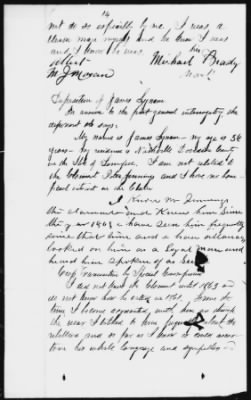 14
not do so especially by me, I was a
Union man myself and he knew I was
and I knew he was
Attest Michael Brady
M. J. Moran mark
Deposition of James Lynam
In answer to the first general interrogatory the
deponent he says:
My name is James Lynam — my age is 38
years — My residence is Nashville Davidson County
in the State of Tennessee. I am not related to
the Claimant Peter Jennings and I have no
interest in the Claim
I know Mr Jennings
the Claimant and knew him since
the year 1863. I have seen him frequently
since that time and I have always
looked on him as a Loyal man and
heard him spoken of as
Cross Examination by Special Commissioner
I did not know the Claimant until 1863 —
do not know how he voted in 1861. From the
time I became acquainted with him and through
the war I talked to him frequently about the
rebellion and so far as I know or could ascertain
from his whole language and sympathies